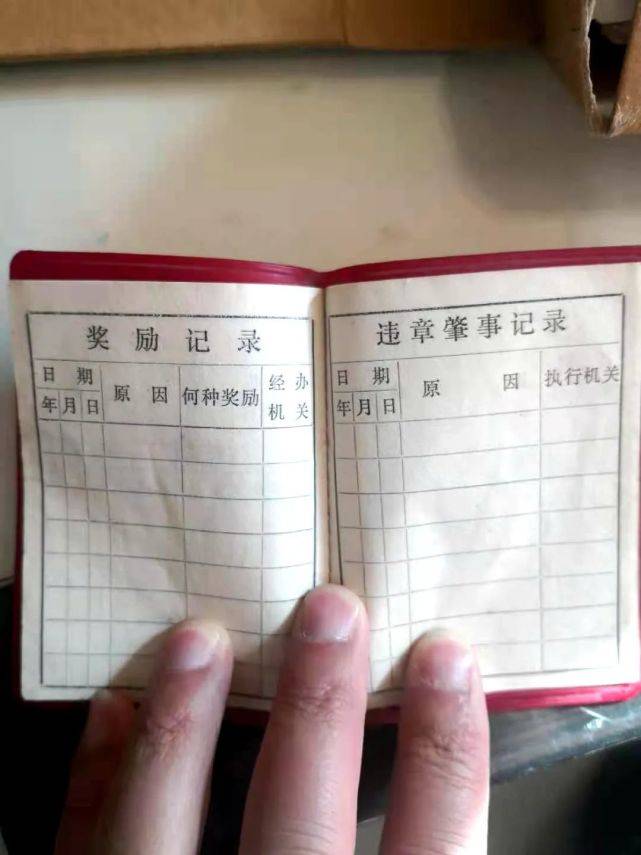 奖励记录
日期 原因 何种奖励 经办机关
年 月 日
违章肇事记录
日期 原因 执行机关
年 月 日